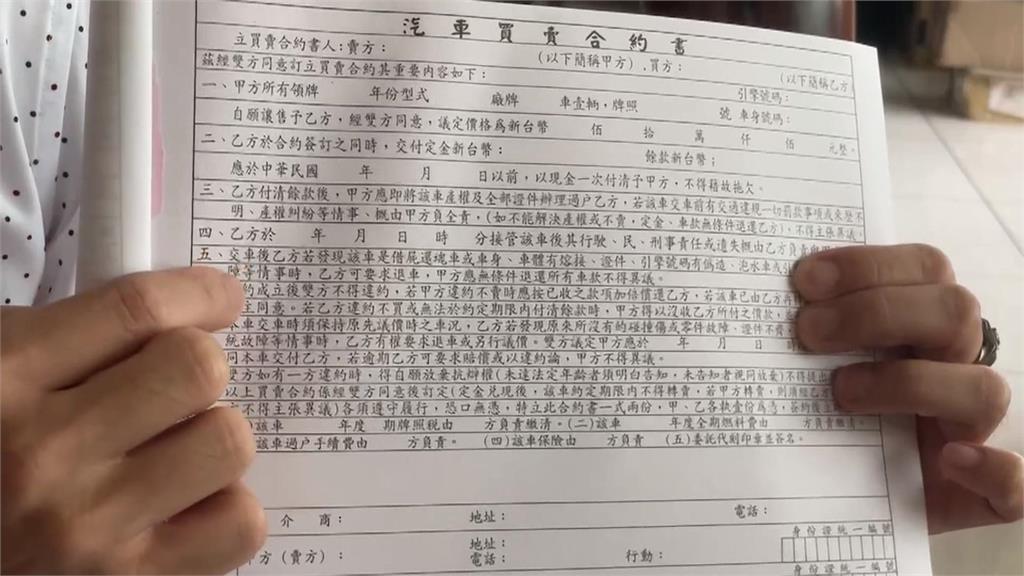 汽車買賣合約書
立買賣合約書人:賣方: (以下簡稱甲方),買方: (以下簡稱乙方
茲經雙方同意訂立買賣合約其重要內容如下:
一、甲方所有領牌 年份型式 廠牌 車壹輛,牌照 號 引擎號碼: 車身號碼:
自願讓售予乙方,經雙方同意,議定價格為新台幣 佰 拾 萬 仟 佰 元整。
二、乙方於合約簽訂之同時,交付定金新台幣: 餘款新台幣;
應於中華民國 年 月 日以前,以現金一次付清予甲方,不得藉故拖欠。
三、乙方付清餘款後,甲方應即將該車產權及全部證件辦理過户乙方,若該車交車前有交通違規一切罰款事項或來歷不
明、產權糾紛等情事、概由甲方負全責,(如不能解決產權或不賣,定金、車款無條件退還乙方),不得主張異議
四、乙方於 年 月 日 時 分接管該車後其行駛、民、刑事責任或遺失概由乙方負責
五、交車後乙方若發現該車是借屍還魂車或車身、車體有熔接、證件、引擎號碼有偽造、泡水車
障等情事時,乙方可要求退車,甲方應無條件退還所有車款不得異議。
約成立後雙方不得違約,若甲方違約不賣時應按已收之款項加倍償還乙方,若該車已由乙方
主同意。若乙方違約不買或無法於約定期限內付清餘款時,甲方得以沒收乙方所付之價款
本車交車時須保持原先議價時之車況,乙方若發現原來所沒有的碰撞傷或零件故障,證件不
統故障等情事時,乙方有權要求退車或另行議價。雙方議定甲方應於 年 月 日
同本車交付乙方,若逾期乙方可要求賠償或以違約論,甲方不得異議。
方如有一方違約時,得自願放棄抗辯權(未達法定年齡者須明白告知,未告知者視同放棄)不得提出
以上買賣合約係經雙方同意後訂定(定金兌現後,該車約定期限內不得轉賣,若甲方轉賣,則須經乙方
不得主張異議)各須遵守履行,恐口無憑,特立此合約書一式兩份,甲、乙各執壹份為憑,簽約後
該車 年度 期牌照稅由 方負責繳清。(二)該車 年度全期燃料費由 方負責繳清。
該車過户手續費由 方負責。 (四)該車保險由 方負責 (五)委託代刻印章並簽名。
介 商: 地址: 電話:
方(賣方): 地址: 電話: 行動: 身份證統一編號
身份證統一編號